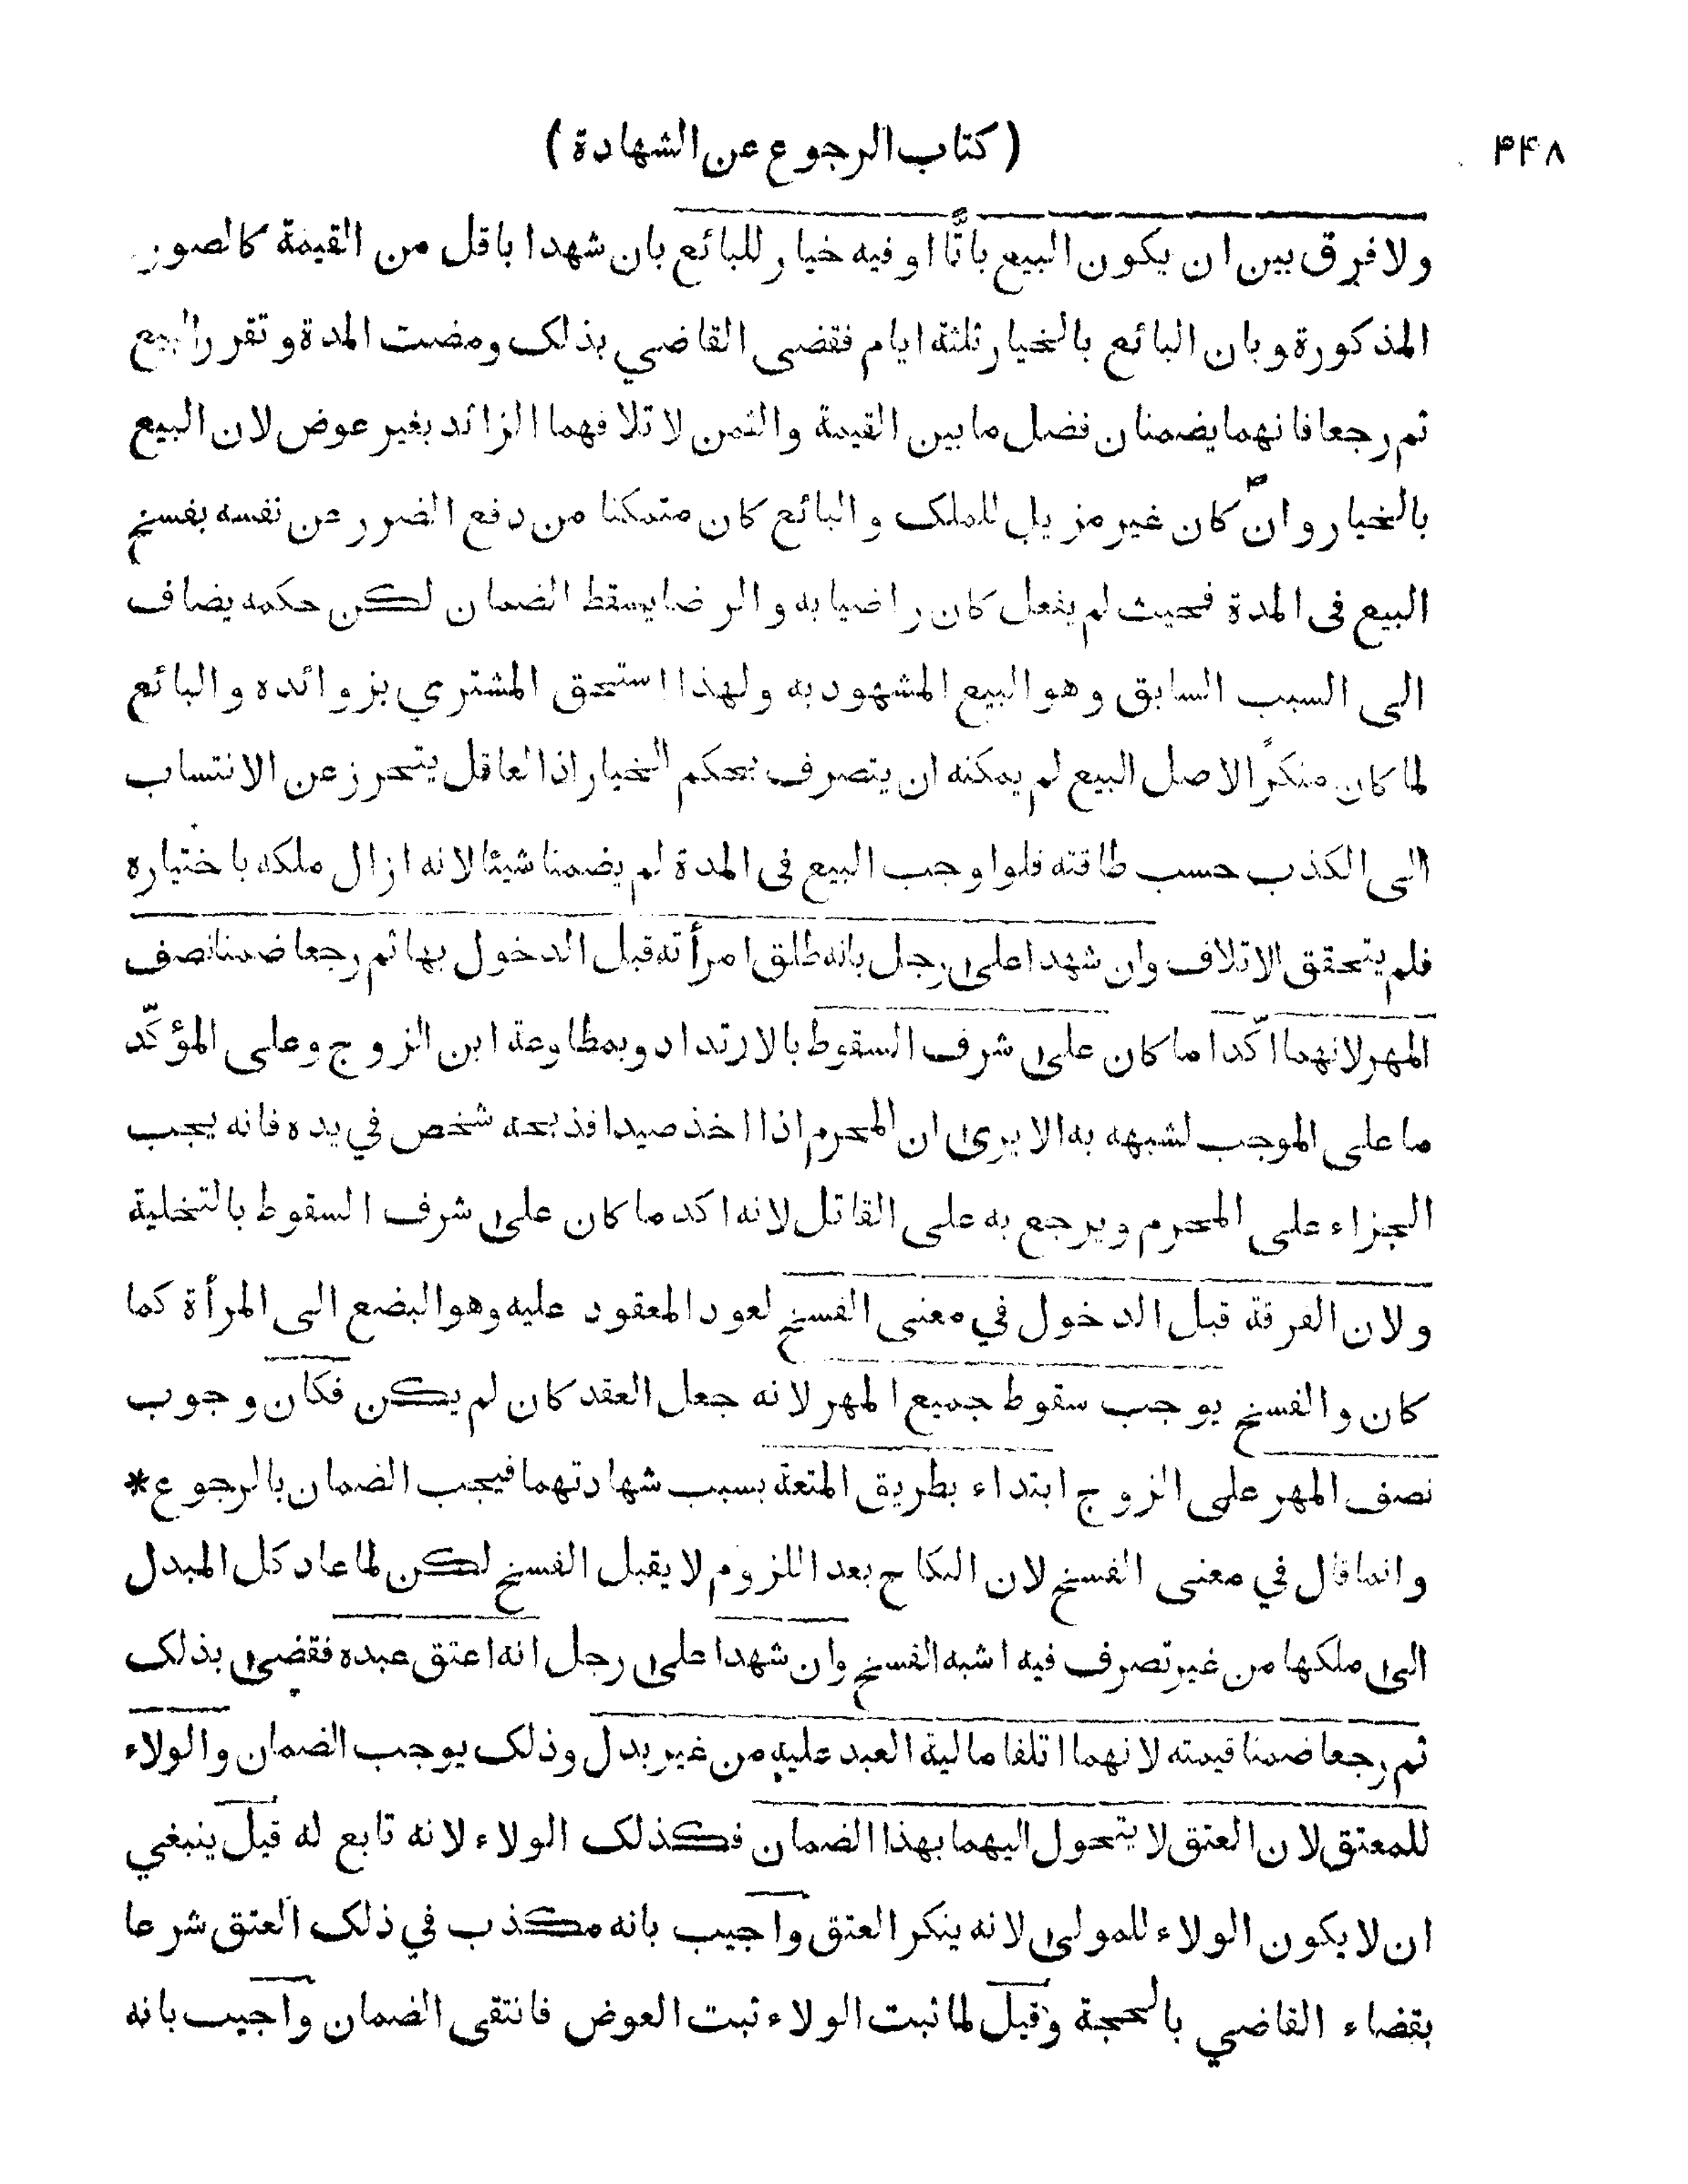 ۳۴۸
( كتاب الرجوع عن الشهادة )
ولا فرق بين ان يكون البيع باتًّا او فيه خيار للبائع بان شهدا باقل من القيمة كالصور
المذكورة وبان البائع بالخيار ثلثة ايام فقضى القاضي بذلك ومضت المدة وتقرر البيع
ثم رجعا فانهما يضمنان فضل ما بين القيمة والثمن لاتلافهما الزائد بغير عوض لان البيع
بالخيار وان كان غير مزيل للملك والبائع كان متمكنا من دفع الضرر عن نفسه بفسخ
البيع فى المدة فحيث لم يفعل كان راضيا به والرضا يسقط الضمان لكن حكمه يضاف
الى السبب السابق وهو البيع المشهود به ولهذا استحق المشتري بزوائده والبائع
لما كان منكرًا لاصل البيع لم يمكنه ان يتصرف بحكم الخيار اذ العاقل يتحرز عن الانتساب
الى الكذب حسب طاقته فلو اوجب البيع فى المدة لم يضمنا شيئا لانه ازال ملكه باختياره
فلم يتحقق الاتلاف وان شهدا على رجل بانه طلق امرأته قبل الدخول بها ثم رجعا ضمنا نصف
المهر لانهما اكّدا ما كان على شرف السقوط بالارتداد وبمطاوعة ابن الزوج وعلى المؤكّد
ما على الموجب لشبهه به الا يرى ان المحرم اذا اخذ صيدا فذبحه شخص في يده فانه يجب
الجزاء على المحرم ويرجع به على القاتل لانه اكد ما كان على شرف السقوط بالتخلية
ولان الفرقة قبل الدخول في معنى الفسخ لعود المعقود عليه وهو البضع الى المرأة كما
كان والفسخ يوجب سقوط جميع المهر لانه جعل العقد كان لم يكن فكان وجوب
نصف المهر على الزوج ابتداء بطريق المتعة بسبب شهادتهما فيجب الضمان بالرجوع *
وانما قال في معنى الفسخ لان النكاح بعد اللزوم لا يقبل الفسخ لكن لما عاد كل المبدل
الى ملكها من غير تصرف فيه اشبه الفسخ وان شهدا على رجل انه اعتق عبده فقضى بذلك
ثم رجعا ضمنا قيمته لانهما اتلفا مالية العبد عليه من غير بدل وذلك يوجب الضمان والولاء
للمعتق لان العتق لا يتحول اليهما بهذا الضمان فكذلك الولاء لانه تابع له قيل ينبغي
ان لا يكون الولاء للمولى لانه ينكر العتق واجيب بانه مكذب في ذلك العتق شرعا
بقضاء القاضي بالحجة وقيل لما ثبت الولاء ثبت العوض فانتقى الضمان واجيب بانه